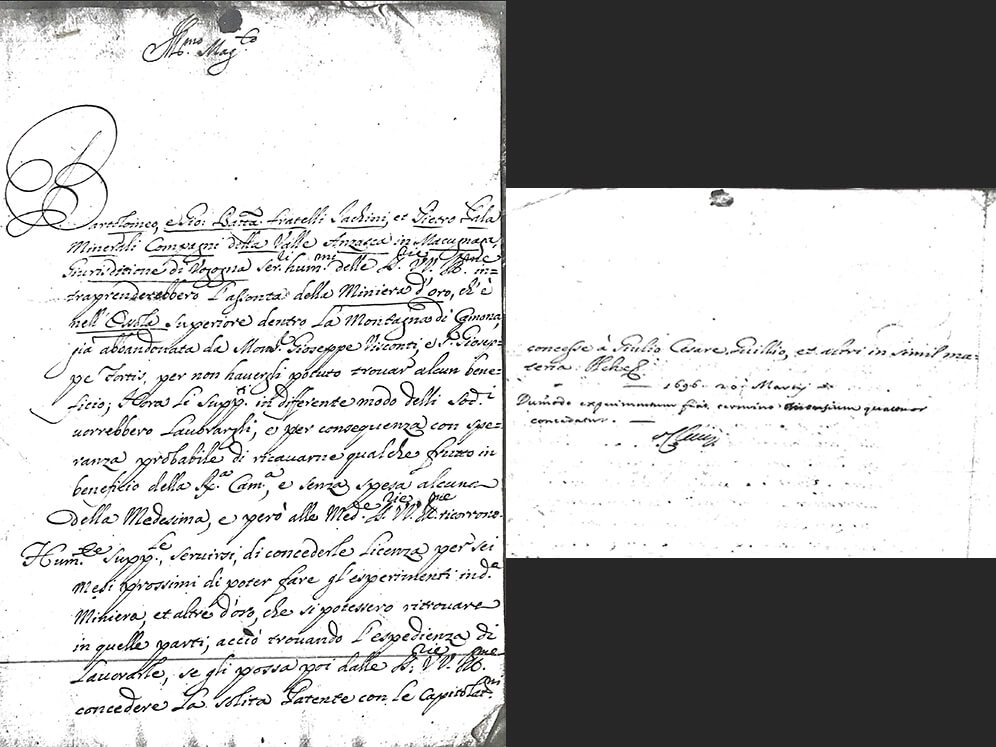 Ill.mo Mag.to
Bartolomeo, e Gio: Batta. fratelli Jachini, et Pietro Lala
Minerali Compagni della Valle Anzasca in Macugnaga
Giurisditione di Vogogna ser.li hum.mi delle S.rie VV. Ill.me in=
traprenderebbero l'assonta della Miniera d'oro, ch'è
nell'Ossola Superiore dentro la Montagna di
già abbandonata da Mons. Gioseppe Visconti, e S. Giosep=
pe Tortis, per non havergli potuto trovar alcun bene=
ficio; Hora li Supp.ti in diferente modo delli Sod.i
vorrebbero Lavorarghi, e per consequenza con spe=
ranza probabile di ricavarne qualche frutto in
beneficio della R.a Cam.a, e senza spesa alcuna
della Medesima, e però alle Med.e S.rie VV. Ill.me ricorrono.
Hum.te Supp.le, servirsi, di concederle Licenza per sei
mesi prossimi di poter fare gl'esperimenti in d.a
Miniera, et altre d'oro, che si potessero ritrovare
in quelle parti; acciò trovando l'espedienza di
Lavorarle, se gli possa poi dalle S.rie VV. Ill.me
concedere la solita Patente con le Capitolat.ni
concesse à Giulio Cesare Guillio, et altri in simil ma=
teria. Il che
1696. 20. Martij
Dumodo exquimentum fiat termino mensium quatuor
concedatur.